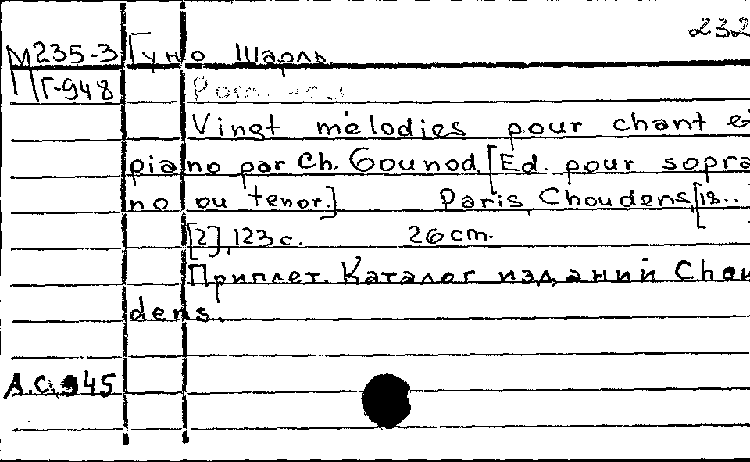 232
М235-3 Гуно Шарль
Г-948
Vingt mélodies pour chant et
piano par Ch. Gounod. [Ed. pour sopra
no ou tenor.] Paris, Choudens, [18..
[2], 123 с. 26 cm.
Приплет. Каталог изданий Chou
dens.